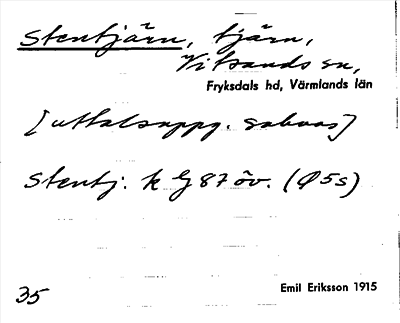 Stentjärn, tjärn,
Vitsands sn,
Fryksdals hd, Värmlands län
[uttalsuppg. saknas]
Stentj: k Lj 87 öv. (Ø5s)
35
Emil Eriksson 1915